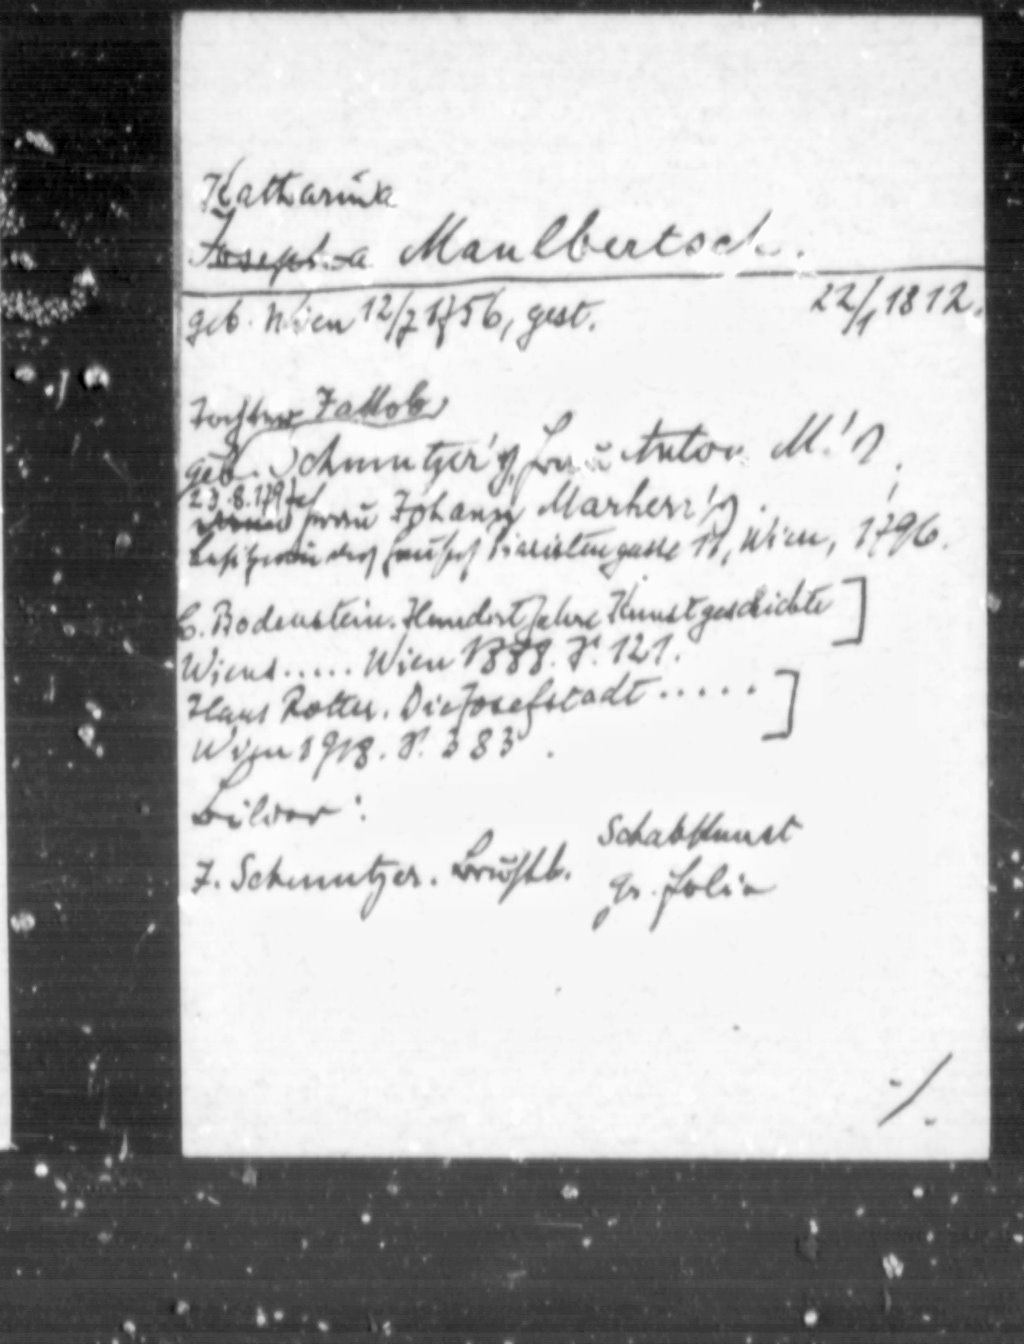 Katharina
Josepha Maulbertsch.
geb. Wien 12/7 1756, gest. 22/1 1812.
Tochter Jakob
geb. Schmutzer's, Frau Anton M.'s.
23.8.1797
Frau Johann Marherr's.
Besitzerin des Hauses Piaristengasse 11, Wien, 1796.
C. Bodenstein. Hundert Jahre Kunstgeschichte
Wiens..... Wien 1888. S. 121.
Hans Rotter. Die Josefstadt.....
Wien 1918. S. 383.
Bilder:
J. Schmutzer. Brustb. Schabkunst
gr. folio
./.